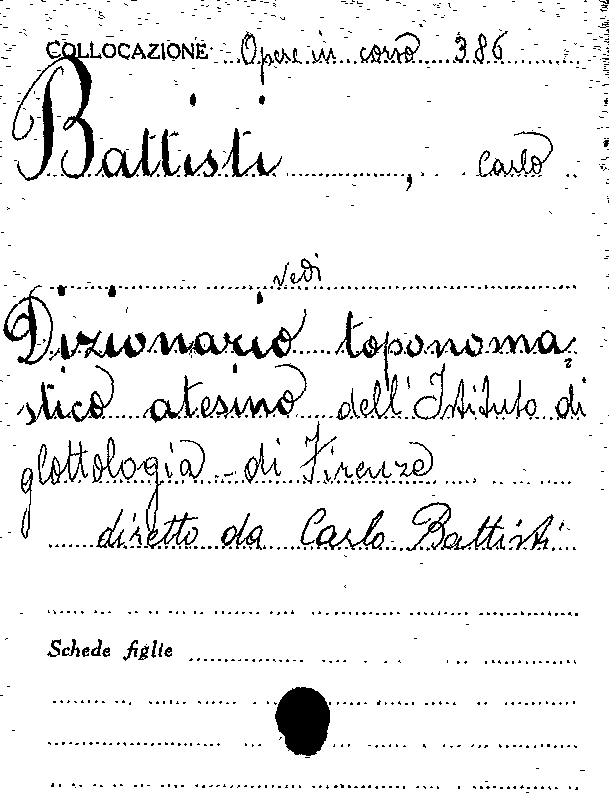 COLLOCAZIONE Opere in corso 386
Battisti, Carlo
vedi
Dizionario toponoma=
stico atesino dell'Istituto di
glottologia di Firenze
diretto da Carlo Battisti
Schede figlie